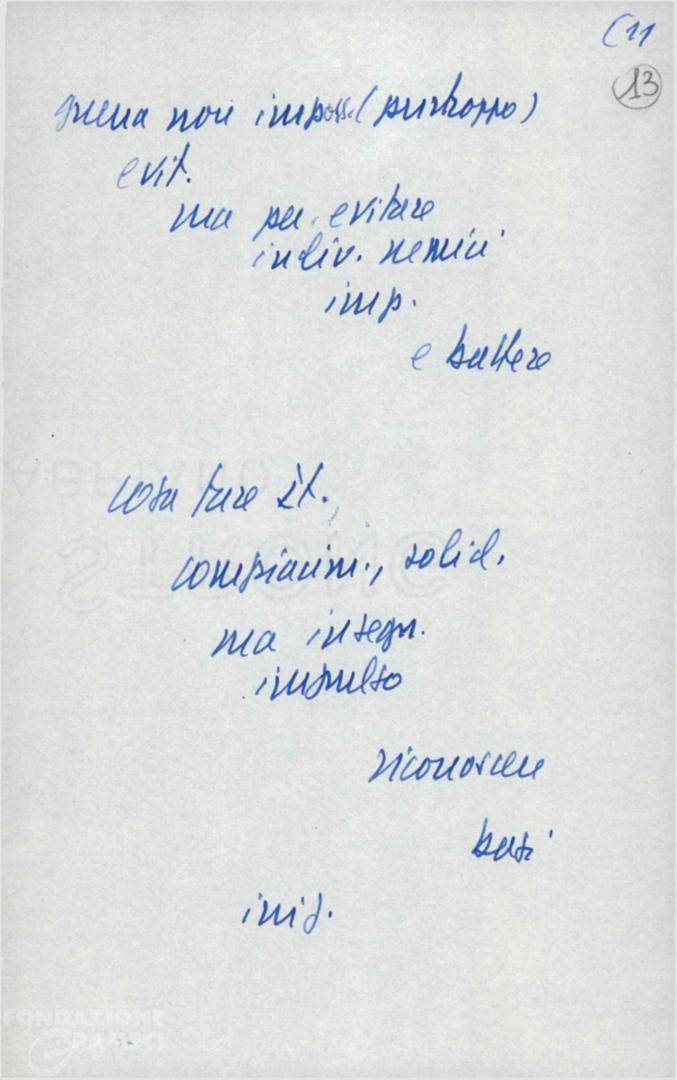 (11
13
guerra non imposs. (purtroppo)
evit.
ma per evitare
indiv. nemici
imp.
e battere
cosa fare It.
compiacim., solid.
ma insegn.
impulso
riconoscere
basi
iniz.
FABRIANO
STRONG
FONDAZIONE
GRAMSCI